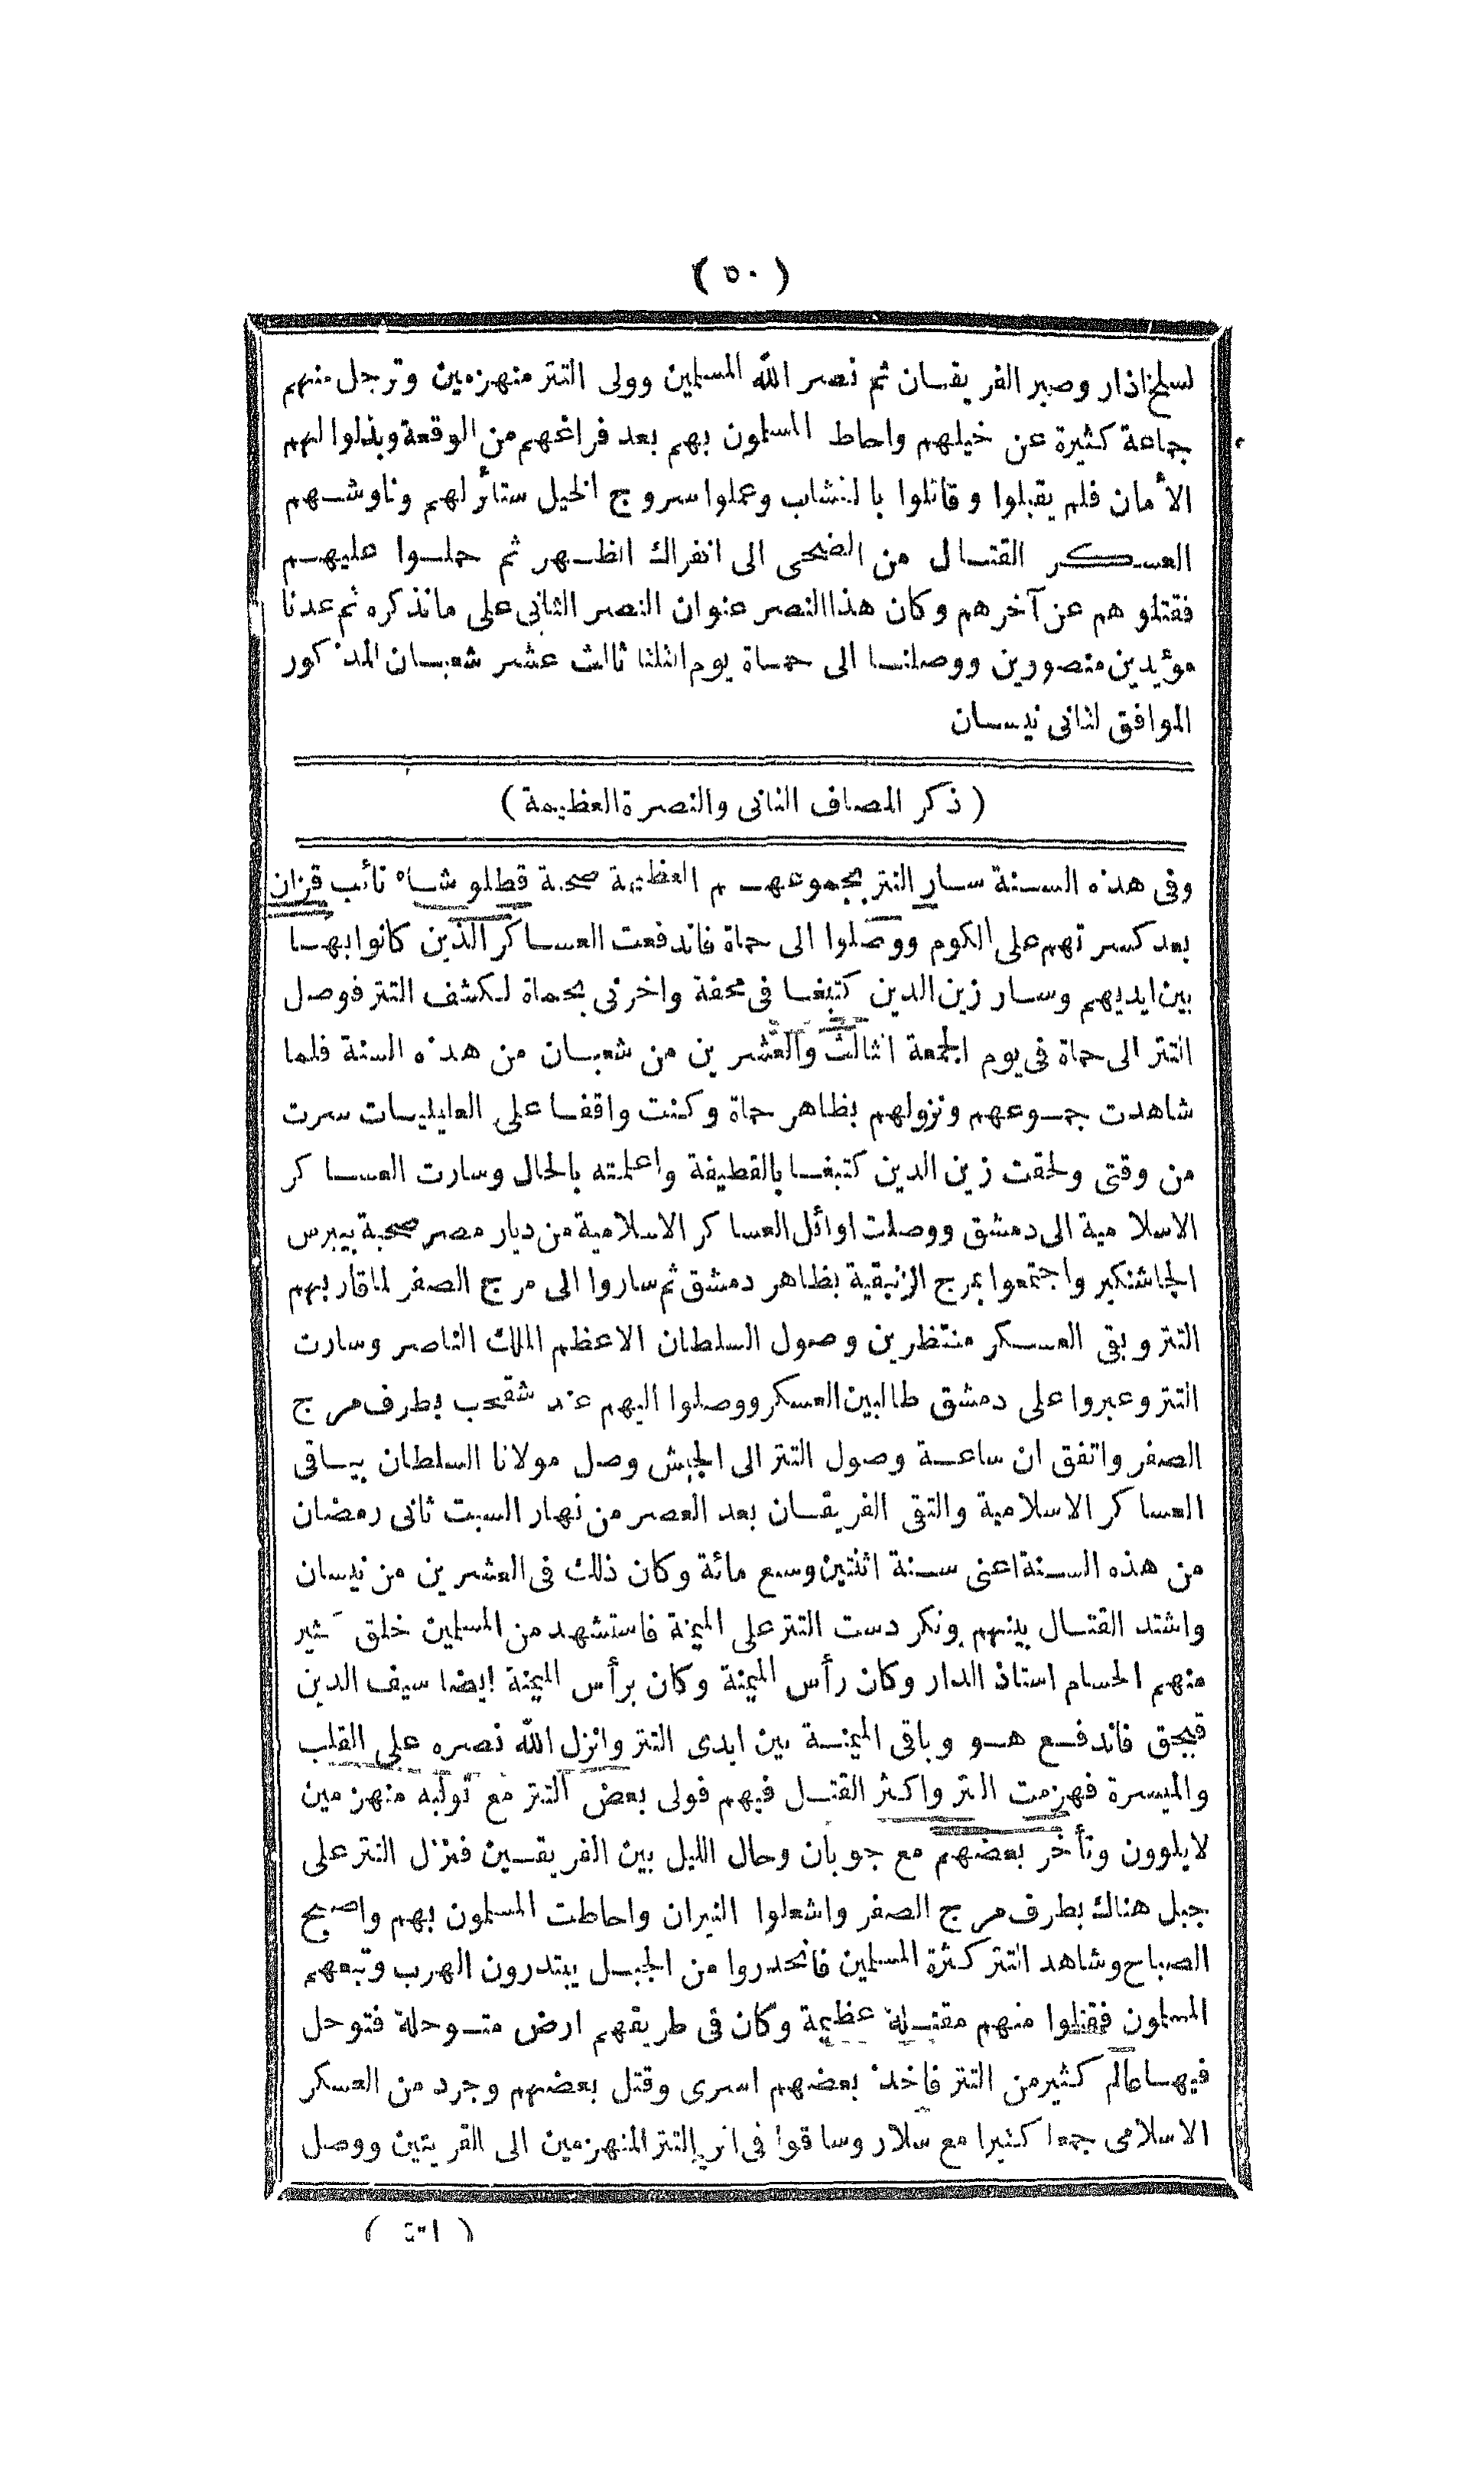 ( ٥٠ )
لسلخ اذار وصبر الفريقان ثم نصر الله المسلمين وولى التتر منهزمين وترجل منهم
جماعة كثيرة عن خيلهم واحاط المسلمون بهم بعد فراغهم من الوقعة وبذلوا لهم
الأمان فلم يقبلوا وقاتلوا بالنشاب وعملوا سروج الخيل ستائر لهم وناوشهم
العسكر القتال من الضحى الى انفراك الظهر ثم حملوا عليهم
فقتلوهم عن آخرهم وكان هذا النصر عنوان النصر الثانى على ما نذكره ثم عدنا
مؤيدين منصورين ووصلنا الى حماة يوم الثلثا ثالث عشر شعبان المذكور
الموافق لثانى نيسان
( ذكر المصاف الثانى والنصرة العظيمة )
وفى هذه السنة سار التتر بجموعهم العظيمة صحبة قطلو شاه نائب قزان
بعد كسرتهم على الكوم ووصلوا الى حماة فاندفعت العساكر الذين كانوا بها
بين ايديهم وسار زين الدين كتبغا فى محفة واخرنى بحماة لكشف التتر فوصل
التتر الى حماة فى يوم الجمعة الثالث والعشرين من شعبان من هذه السنة فلما
شاهدت جموعهم ونزولهم بظاهر حماة وكنت واقفا على العليليات سرت
من وقتى ولحقت زين الدين كتبغا بالقطيفة واعلمته بالحال وسارت العساكر
الاسلامية الى دمشق ووصلت اوائل العساكر الاسلامية من ديار مصر صحبة بيبرس
الجاشنكير واجتمعوا بمرج الزنبقية بظاهر دمشق ثم ساروا الى مرج الصفر لما قاربهم
التتر وبقى العسكر منتظرين وصول السلطان الاعظم الملك الناصر وسارت
التتر وعبروا على دمشق طالبين العسكر ووصلوا اليهم عند شقحب بطرف مرج
الصفر واتفق ان ساعة وصول التتر الى الجيش وصل مولانا السلطان بباقى
العساكر الاسلامية والتقى الفريقان بعد العصر من نهار السبت ثانى رمضان
من هذه السنة اعنى سنة اثنتين وسبع مائة وكان ذلك فى العشرين من نيسان
واشتد القتال بينهم وتكردست التتر على الميمنة فاستشهد من المسلمين خلق كثير
منهم الحسام استاذ الدار وكان رأس الميمنة وكان برأس الميمنة ايضا سيف الدين
قبجق فاندفع هو وباقى الميمنة بين ايدى التتر وانزل الله نصره على القلب
والميسرة فهزمت التتر واكثر القتل فيهم فولى بعض التتر مع توليه منهزمين
لايلوون وتأخر بعضهم مع جوبان وحال الليل بين الفريقين فنزل التتر على
جبل هناك بطرف مرج الصفر واشعلوا النيران واحاطت المسلمون بهم واصبح
الصباح وشاهد التتر كثرة المسلمين فانحدروا من الجبل يبتدرون الهرب وتبعهم
المسلمون فقتلوا منهم مقتلة عظيمة وكان فى طريقهم ارض متوحلة فتوحل
فيها عالم كثير من التتر فاخذ بعضهم اسرى وقتل بعضهم وجرد من العسكر
الاسلامى جمعا كثيرا مع سلار وساقوا فى اثر التتر المنهزمين الى القريتين ووصل